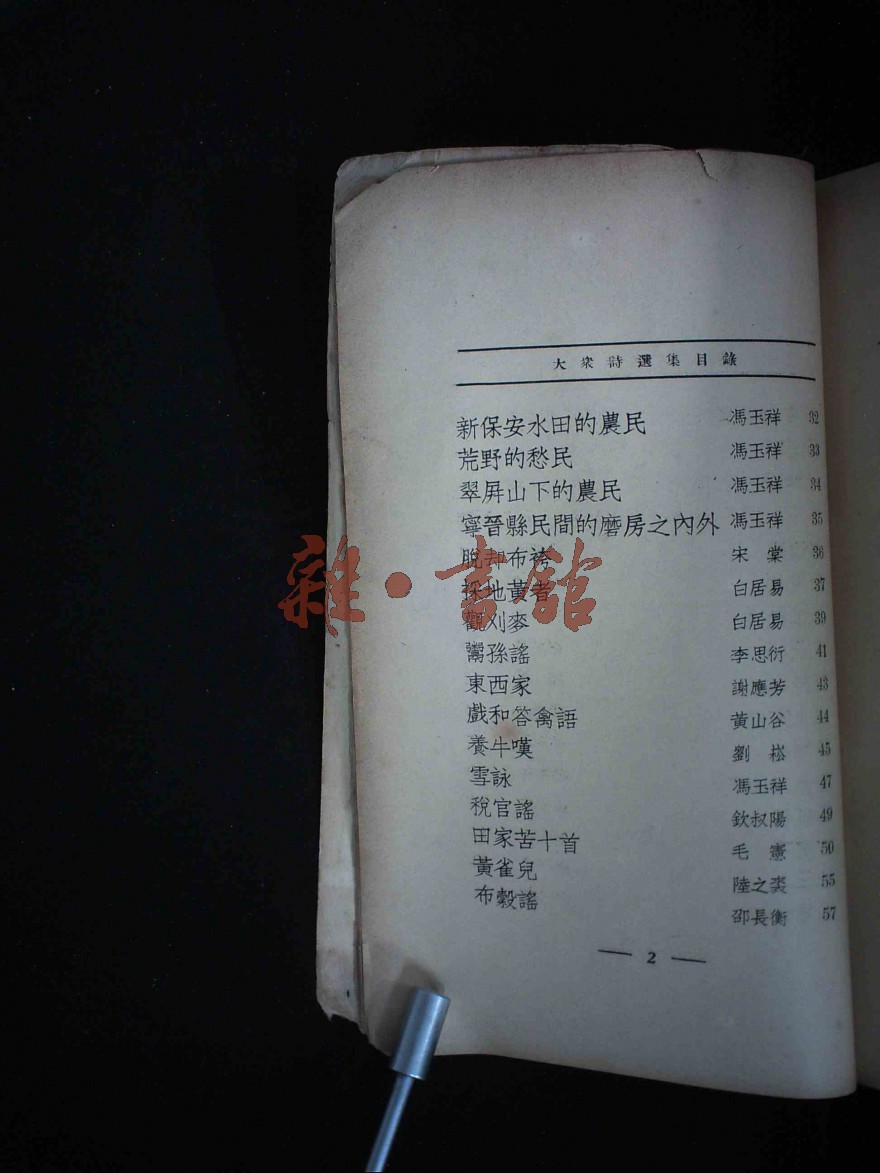 大衆詩選集目錄
新保安水田的農民 馮玉祥 32
荒野的愁民 馮玉祥 33
翠屏山下的農民 馮玉祥 34
寧晉縣民間的磨房之內外 馮玉祥 35
脫却布袴 宋棠 36
採地黃者 白居易 37
觀刈麥 白居易 39
鬻孫謠 李思衍 41
東西家 謝應芳 43
戲和答禽語 黃山谷 44
養牛嘆 劉崧 45
雪詠 馮玉祥 47
稅官謠 欽叔陽 49
田家苦十首 毛憲 50
黃雀兒 陸之裘 55
布穀謠 邵長衡 57
— 2 —
雜·書館